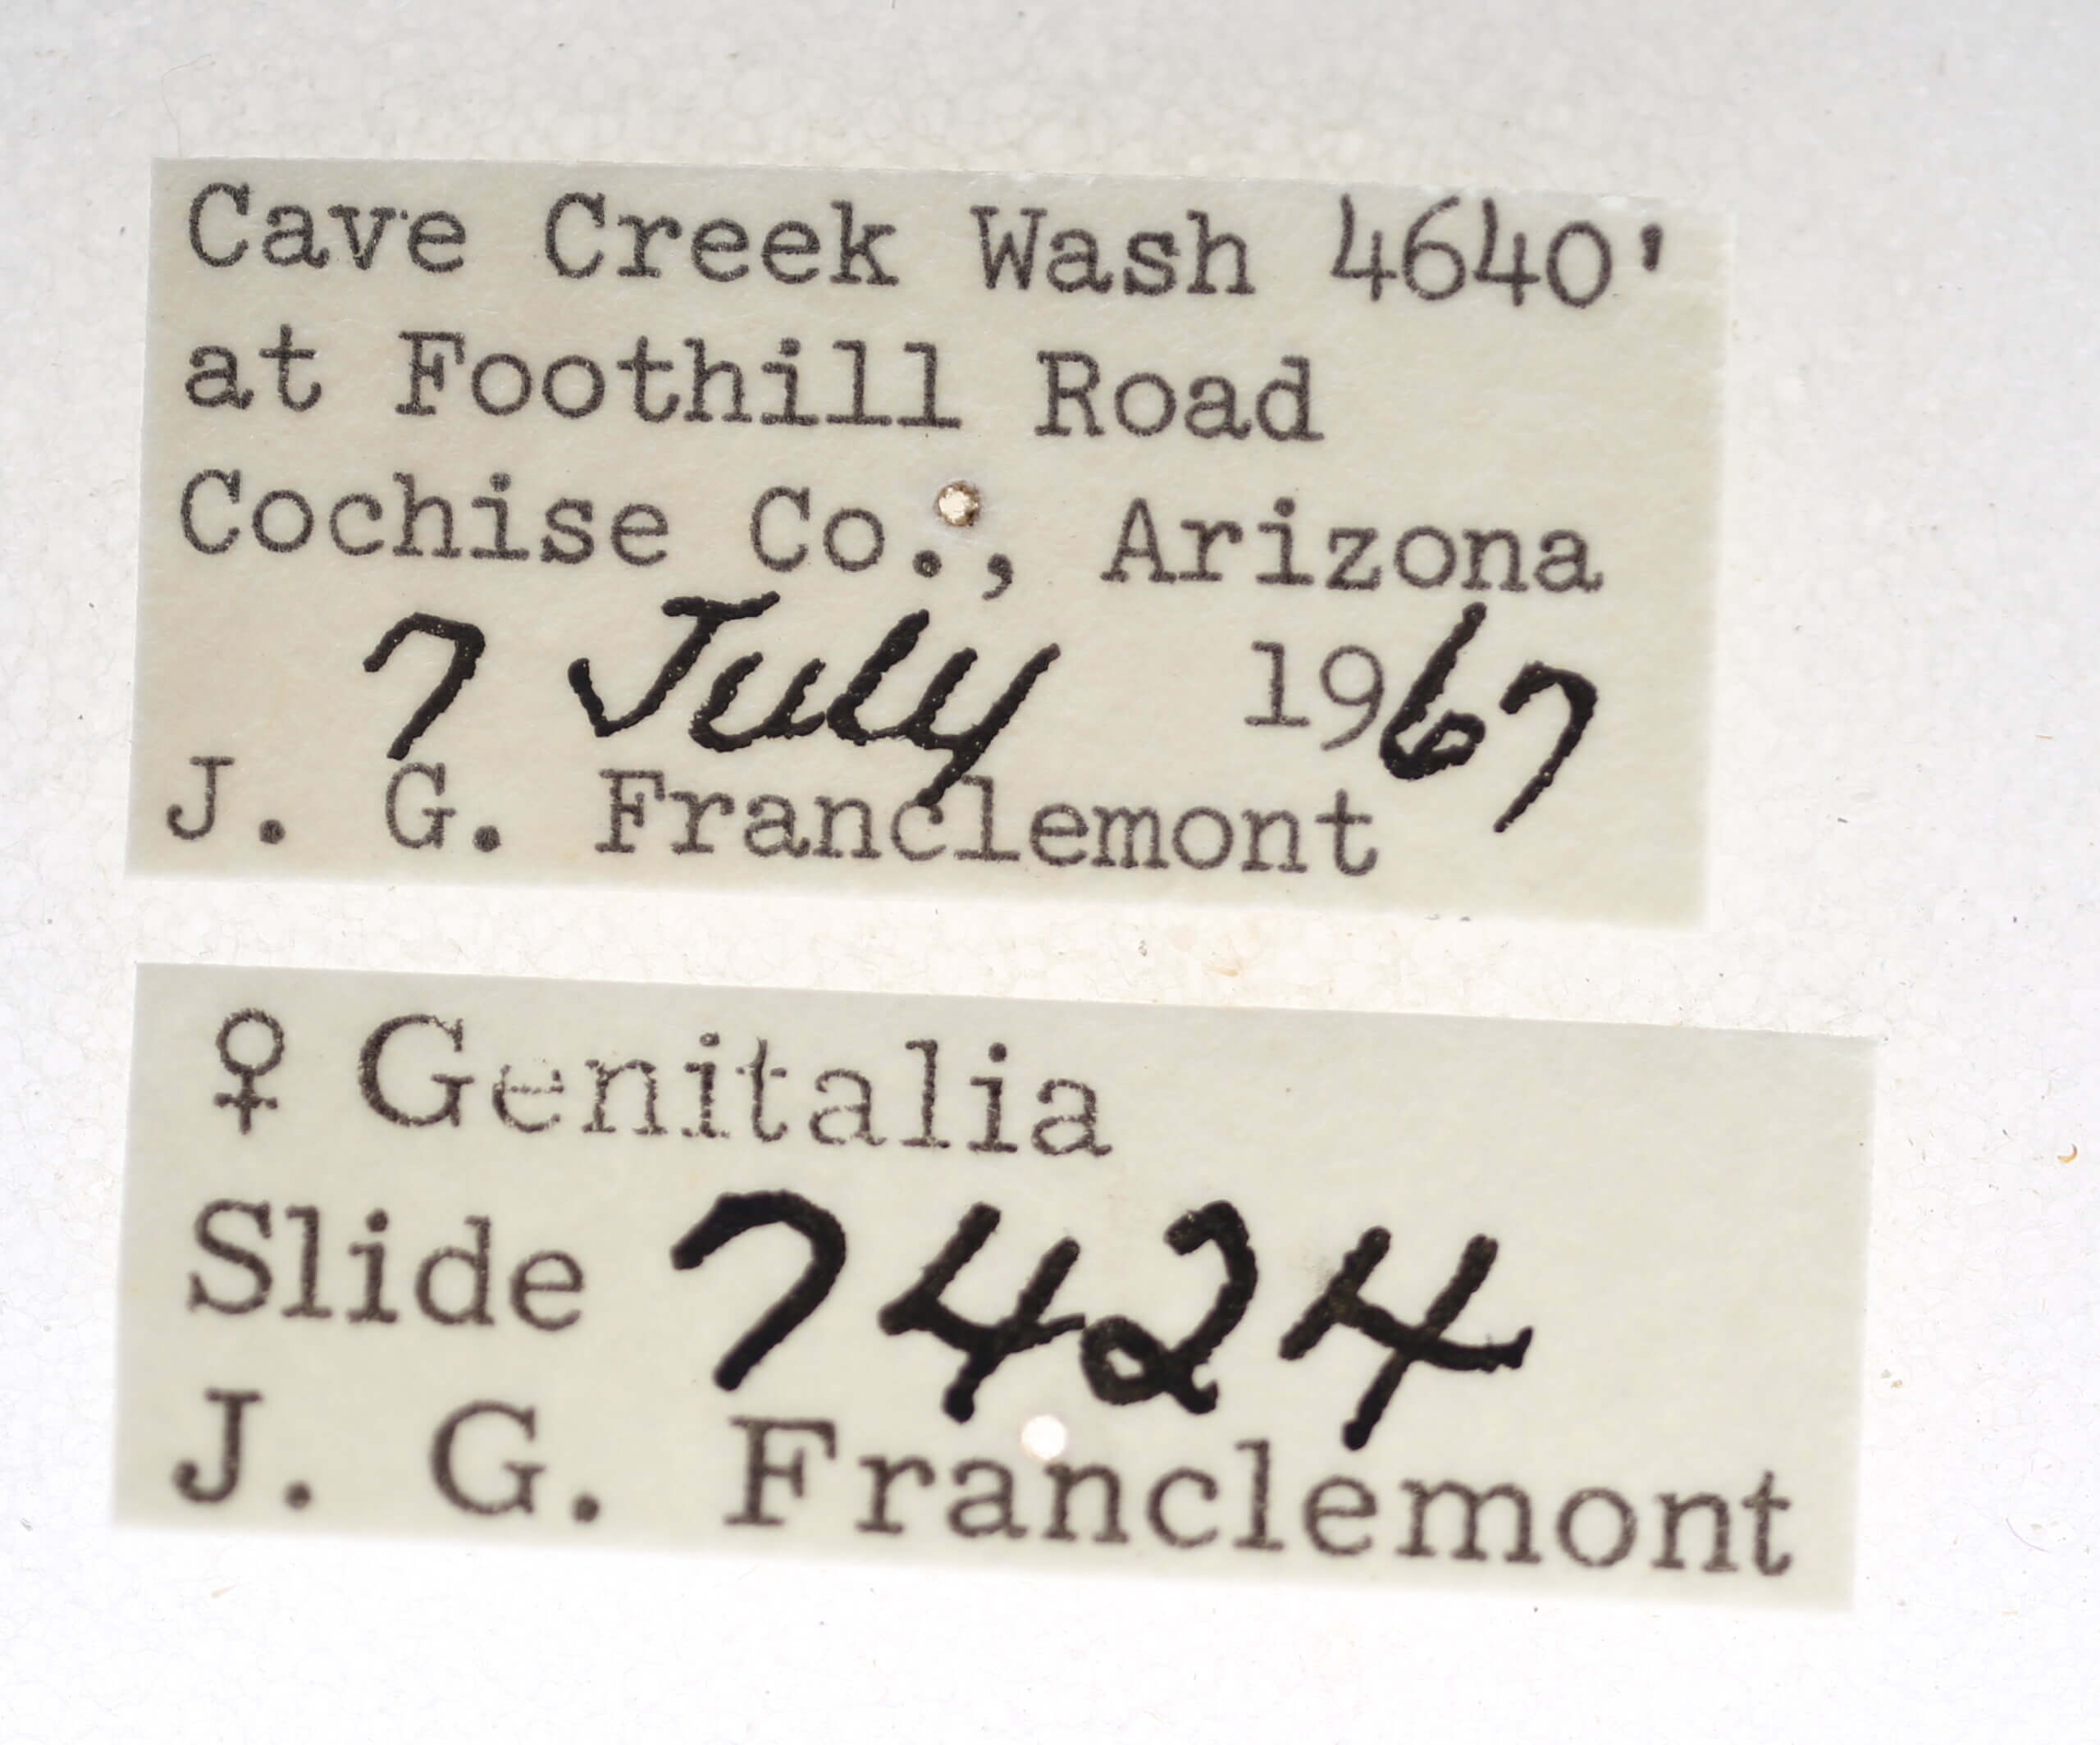 Cave Creek Wash 4640'
at Foothill Road
Cochise Co., Arizona
7 July 1967
J. G. Franclemont
♀ Genitalia
Slide 7424
J. G. Franclemont